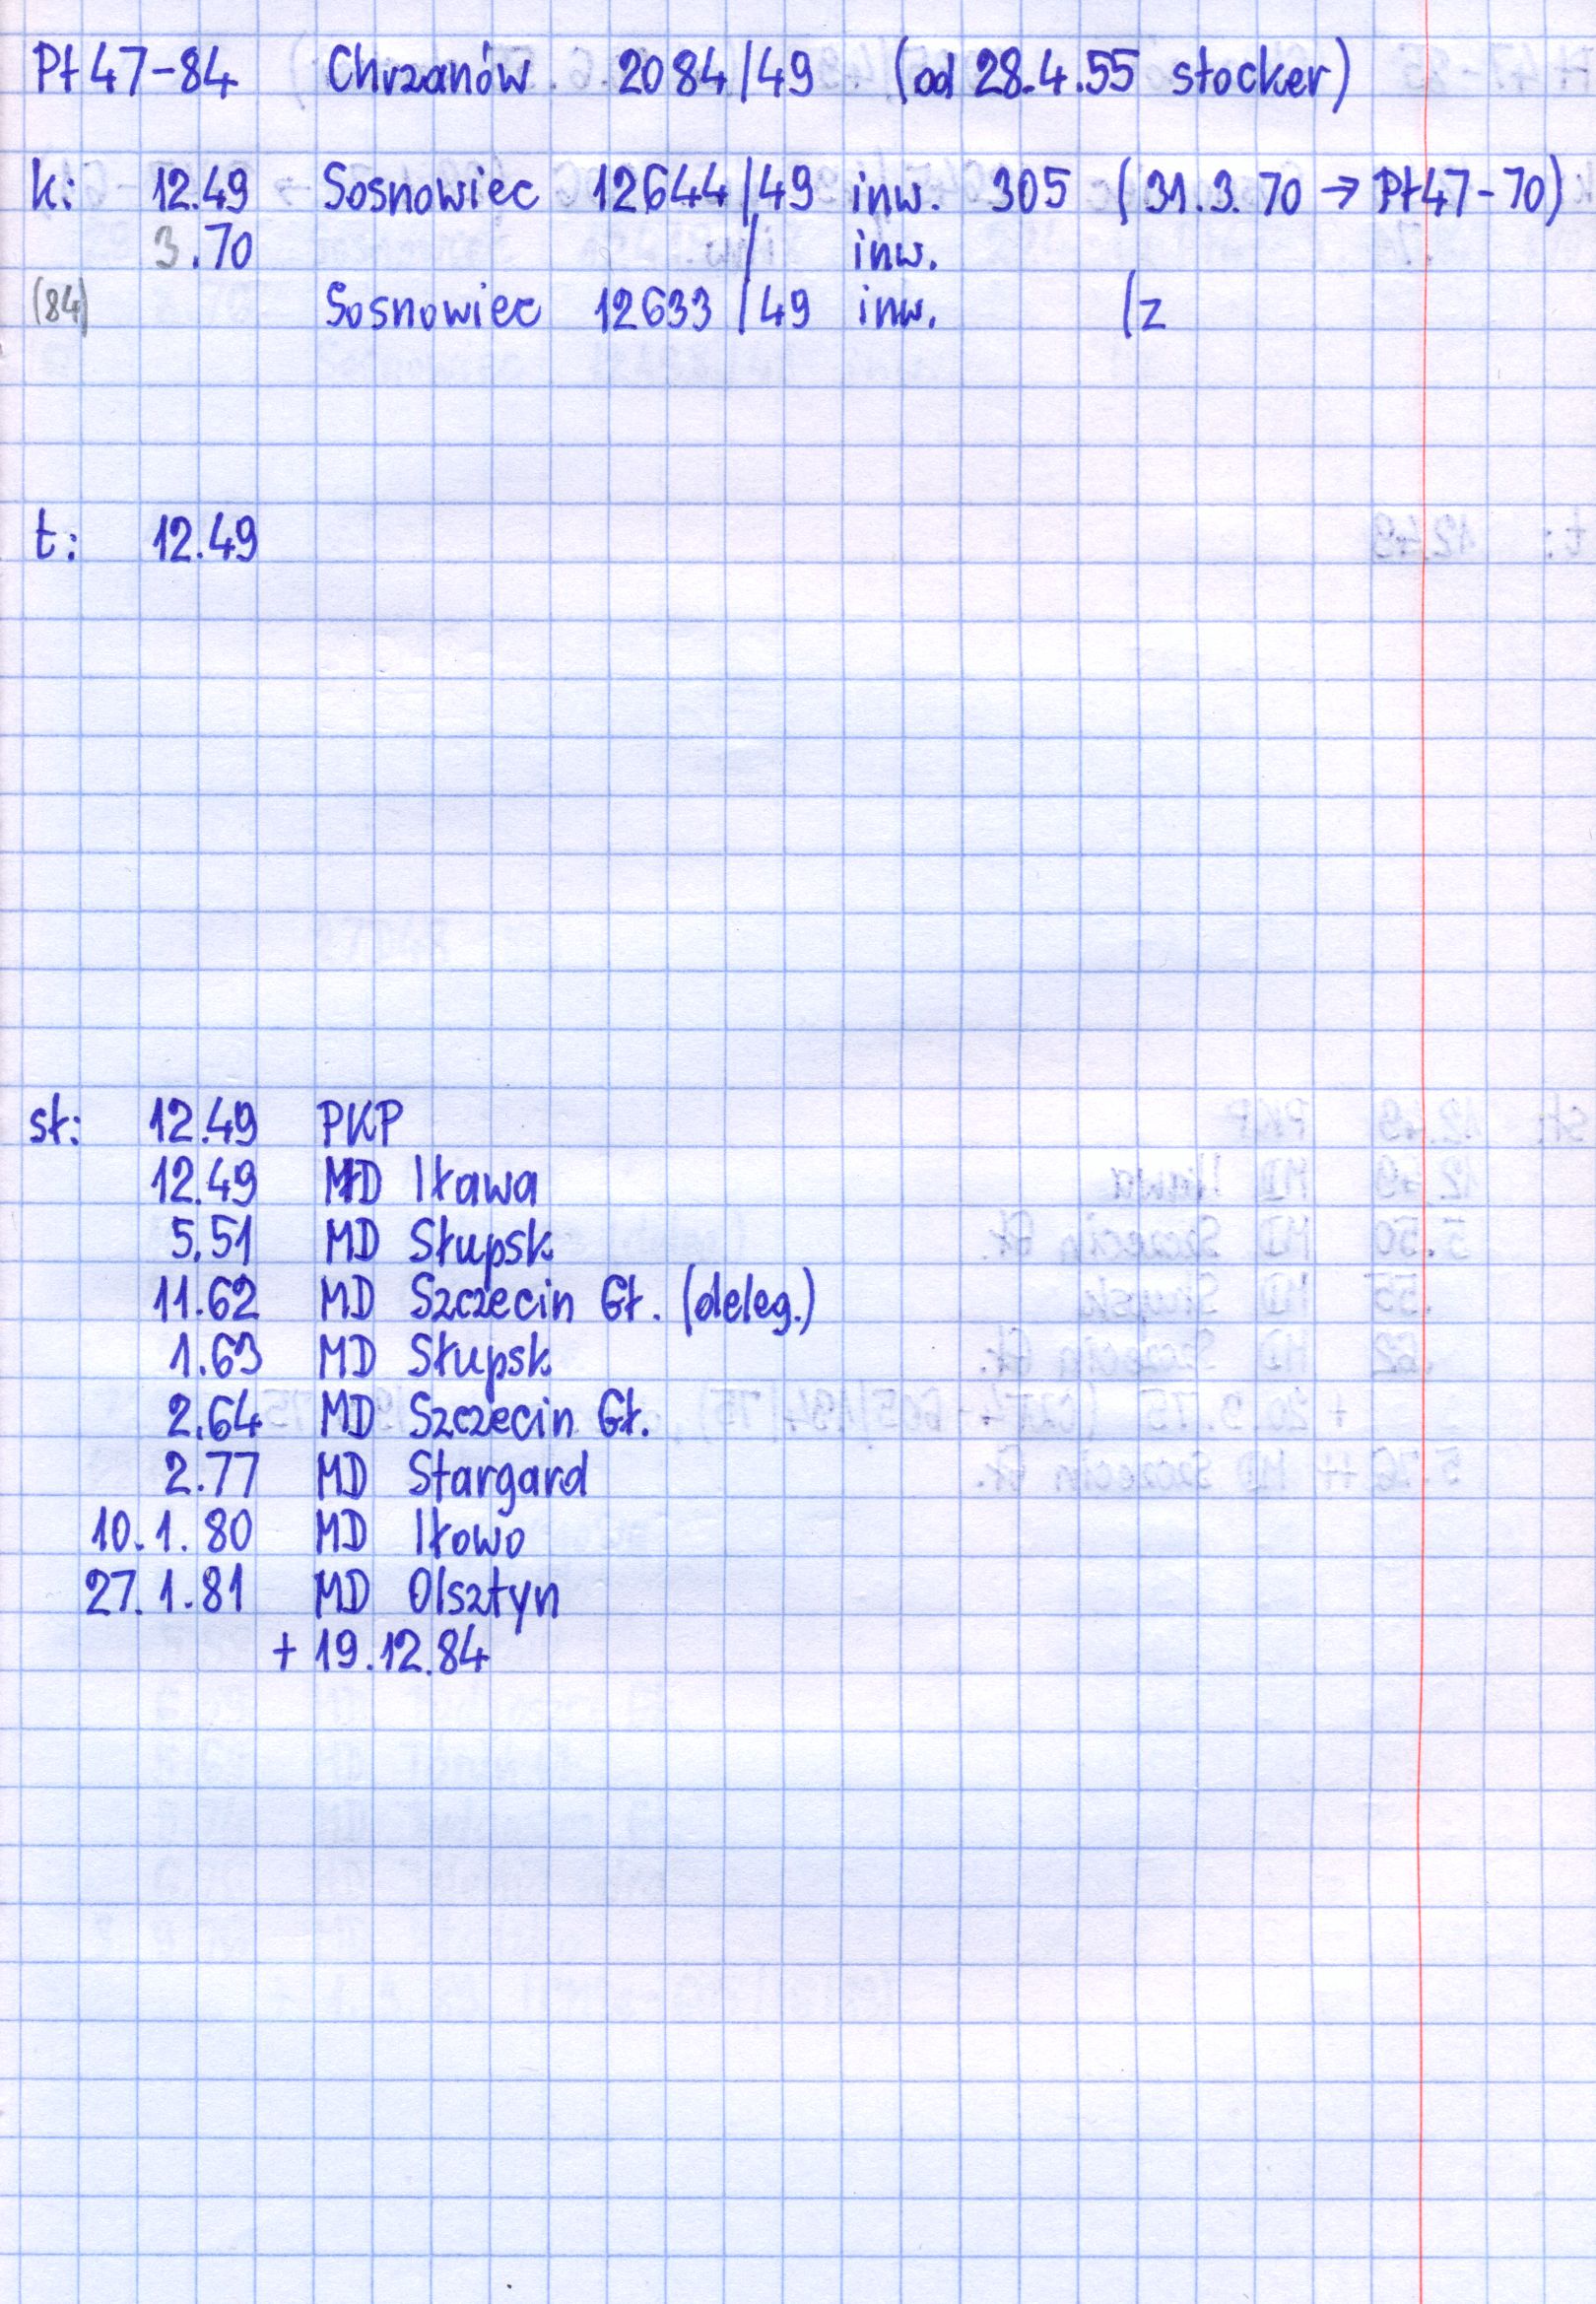 Pt47-84 Chrzanów 2084/49 (od 28.4.55 stocker)
k: 12.49 Sosnowiec 12644/49 inw. 305 (31.3.70 → Pt47-70)
3.70 / inw.
(84) Sosnowiec 12633/49 inw. (z
t: 12.49
st: 12.49 PKP
12.49 MD Iława
5.51 MD Słupsk
11.62 MD Szczecin Gł. (deleg.)
1.63 MD Słupsk
2.64 MD Szczecin Gł.
2.77 MD Stargard
10.1.80 MD Iłowo
27.1.81 MD Olsztyn
+ 19.12.84